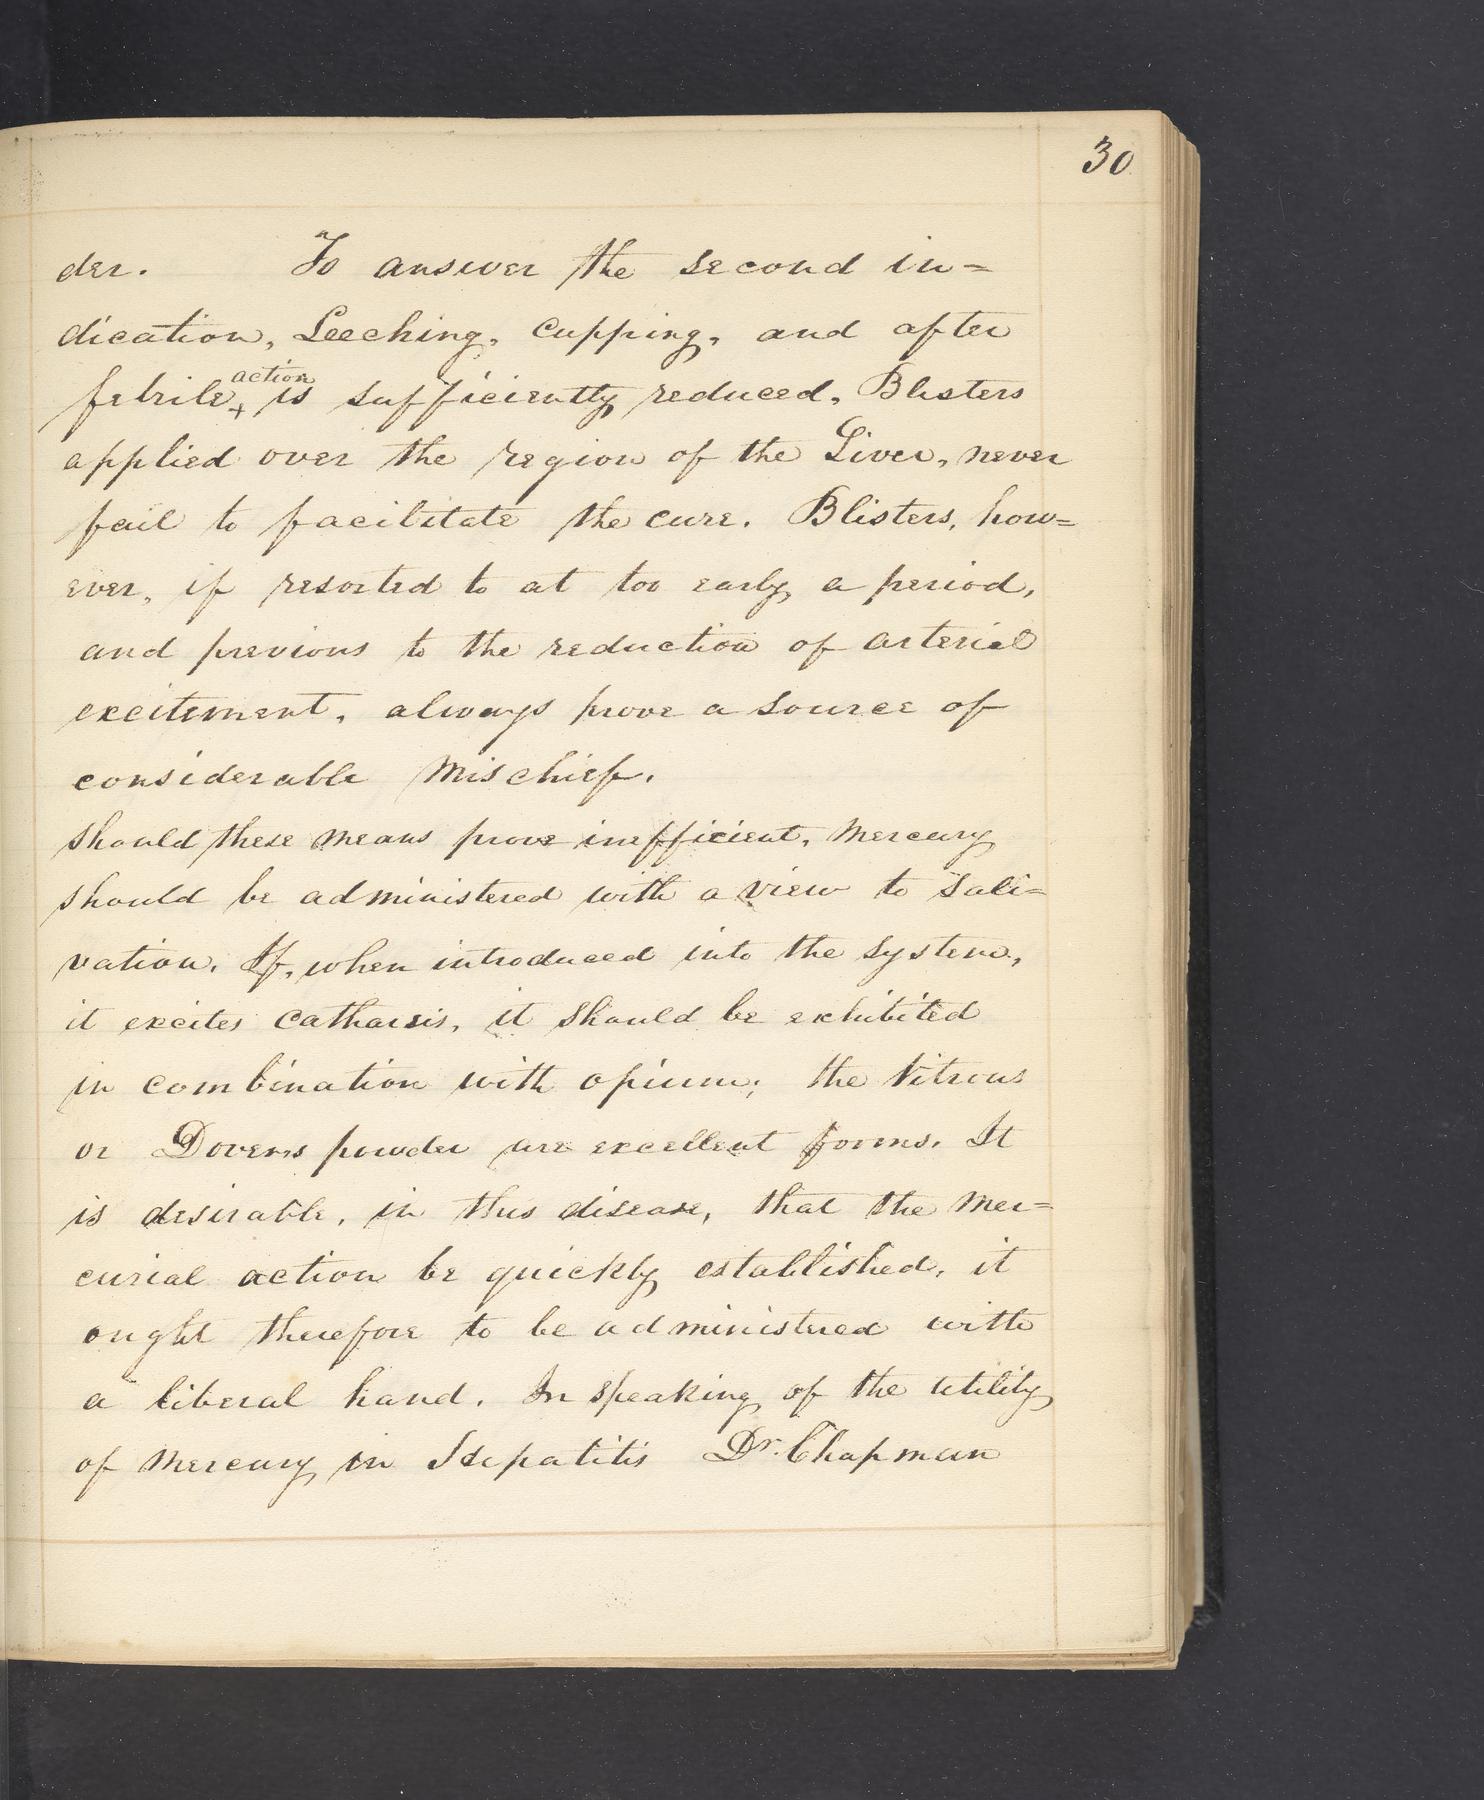 30
der. To answer the second in=
dication, Leeching, Cupping, and after
action
febrile + is sufficiently reduced, Blisters
applied over the region of the Liver, never
fail to facilitate the cure. Blisters, how=
ever, if resorted to at too early a period,
and previous to the reduction of arterial
excitement, always prove a source of
considerable mischief.
should these means prove inefficient, mercury
should be administered with a view to Sali=
vation. If, when introduced into the system,
it excites catharsis, it should be exhibited
in combination with opium; the Nitrous
or Dovers powder are excellent forms. It
is desirable, in this disease, that the mer=
curial action be quickly established, it
ought therefore to be administered with
a liberal hand. In speaking of the utility
of mercury in Hepatitis Dr. Chapman